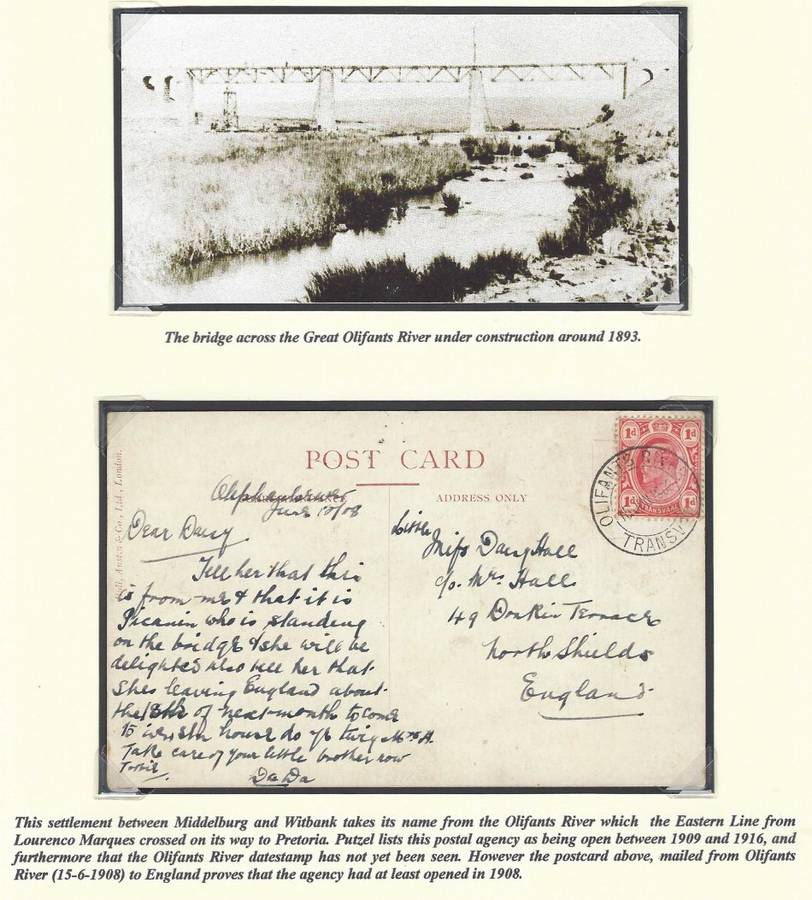 The bridge across the Great Olifants River under construction around 1893.
POST CARD
ADDRESS ONLY
& Co., Ltd., London.
June 15/08
Dear Daisy
Tell her that this
is from me & that it is
Picanin who is standing
on the bridge & she will be
delighted also tell her that
shes leaving England about
the of next month to come
to house do
Take care of your little brother now
DaDa
Little
Miss Daisy Hall
c/o. Mrs Halls
49 Donkin Terrace
North Shields
England
1d 1d
1d 1d
TRANSVAAL
OLIFANTS RI
TRANSV
This settlement between Middelburg and Witbank takes its name from the Olifants River which the Eastern Line from
Lourenco Marques crossed on its way to Pretoria. Putzel lists this postal agency as being open between 1909 and 1916, and
furthermore that the Olifants River datestamp has not yet been seen. However the postcard above, mailed from Olifants
River (15-6-1908) to England proves that the agency had at least opened in 1908.